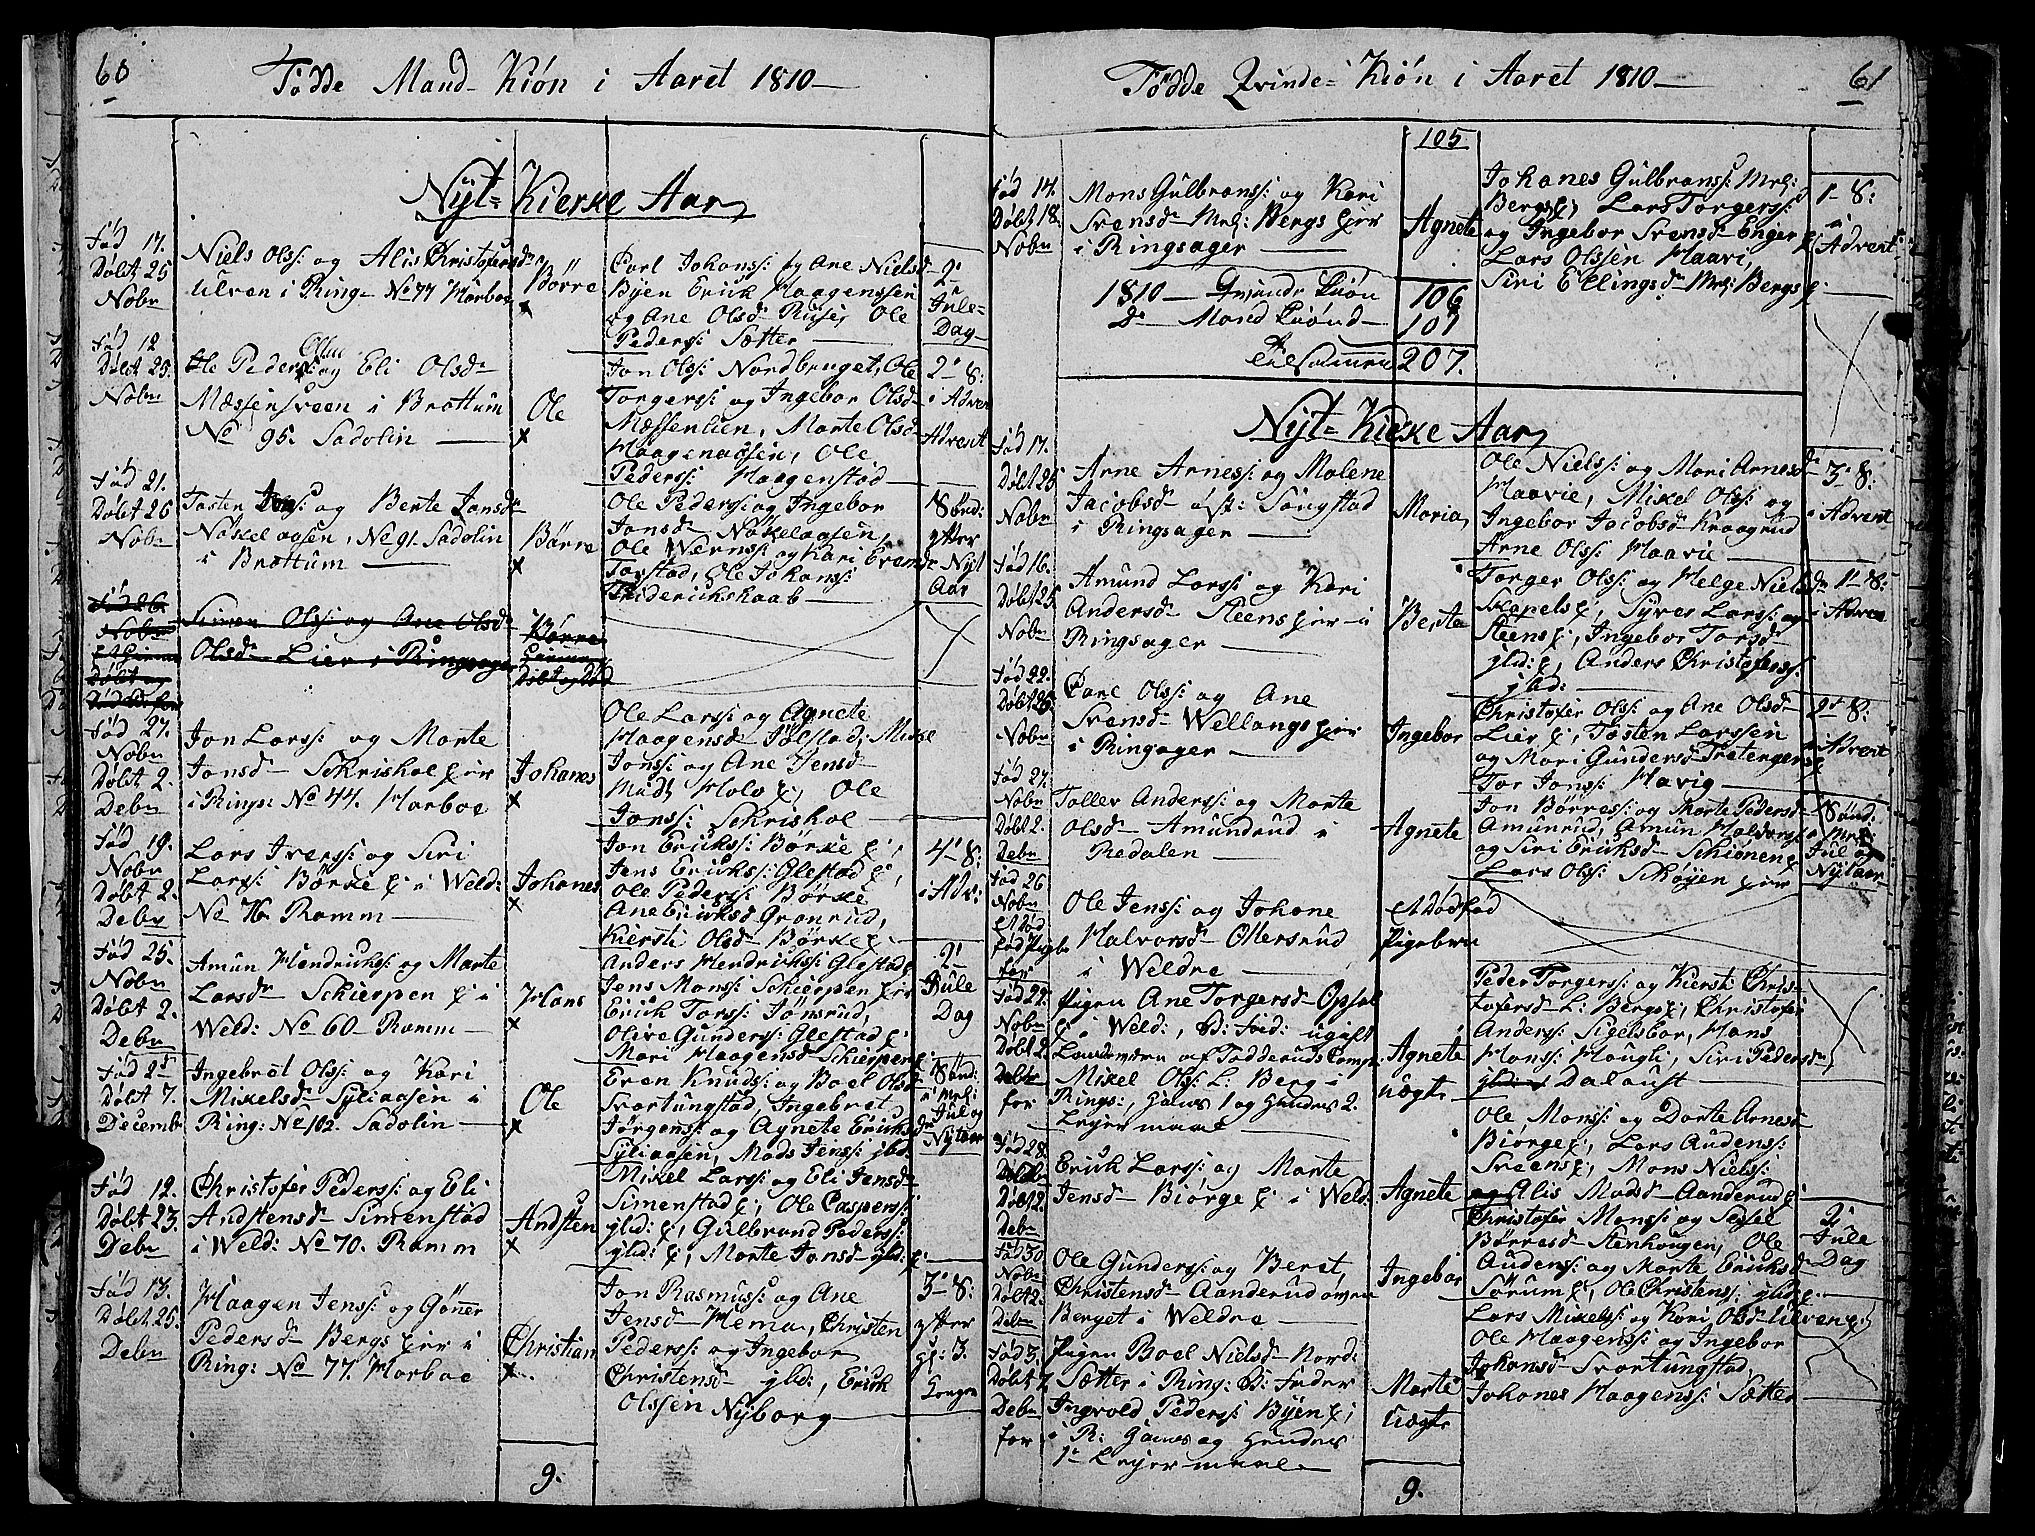 60
Födde Mand-Kiøn i Aaret 1810
Nÿt-Kierke Aar
Fød 17.
Døbt 25
Nobr
Niels Ols: og Alis Christofersd
Ulven i Ring- No 77 Horboe
Børre
x
Carl Johans: og Ane Nielsd-
Byen Erick Haagenssen
og Ane Olsd- Ruse, Ole
Peders: Sætter
2'
Jule-
Dag
Fød 12
Døbt 25.
Nobr
Olsen
Ole Peders: og Eli Olsd-
Mæssensveen i Brøttum
No 95. Sadolin
Ole
x
Jon Ols: Nordbruget, Ole
Torgers: og Ingebor Olsd-
Mæssenlien, Marte Olsd-
Haagenaasen, Ole
Peders: Haagenstad
2' S:
i Adven
Advent
Fød 21.
Døbt 26
Nobr
Tosten Jons: og Berte Jonsd-
Nøkelaasen, No 91. Sadolin
i Brøttum
Børre
x
Ole Peders: og Ingebor
Jonsd- Nøkelaasen,
Ole Werns: og Kari Evensd-
Torstad, Ole Johans:
Friderickskaab
Sønd:
efter
Nyt
Aar
Fød 26.
Nobr
Simen Ols: og Ane Olsd-
Olsd- Lier i Ringsager
Børre
Døbt og Død
Fød 27.
Nobr
Døbt 2.
Debr
Jon Lars: og Marte
Jonsd- Skriskol eir
i Rings: No 44. Horboe
Johanes
x
Ole Lars: og Agnete
Haagensd- Jølstad, Mikel
Jons: og Ane Jensd-
Holo e, Ole
Jons: Skriskol
Fød 19.
Nobr
Døbt 2.
Debr
Lars Ivers: og Siri
Lars: Børke e: i Weld:
No 76 Ramm
Johanes
x
Jon Ericks: Børke e:
Jens Ericks: Glestad e,
Ole Peders: Børke
Ane Ericksd Grønrud,
Kiersti Olsd- Børke e:
4' S:
i Adv:
Fød 25.
Nobr
Døbt 2.
Debr
Amun Hendricks: og Marte
Larsd- Schierpen e: i
Weld: No 60- Ramm
Hans
x
Anders Hendricks: Glestad e
Jens Mons: Schierpen eir
Erick Tors: Jønsrud,
Olive Gunders: Glestad e:
Mari Haagensd Schierpen e:
2'
Jule
Dag
Fød 2'
Døbt 7.
Decembr
Ingebrét Ols: og Kari
Mikelsd- Syliaasen i
Ring: No 102. Sadolin
Ole
x
Even Knuds: og Boel Olsd-
Svartungstad, Ingebret
Jørgens: og Agnete Ericksd-
Syliaasen, Mads Jens: ibd.
Sønd:
i Mel:
Jul og
Nytaar
Fød 12.
Døbt 23.
Debr
Christofer Peders: og Eli
Andstensd- Simenstad
i Weld: No 70. Ramm
Andsten
x
Mikel Lars: og Eli Jensd-
Simenstad e, Ole Caspers:
ibid: e, Gulbrand Peders:
ibid: e, Marte Jonsd- ibid: e:
Fød 13.
Døbt 26.
Debr
Haagen Jens: og Gøner
Pedersd- Bergs eir i
Ring: No 77. Horboe
Christian
x
Jon Rasmus: og Ane
Jensd- Hema, Christen
Peders: og Ingebor
Christensd- ibid:, Erick
Olssen Nyborg
3' S:
efter
Hl: 3.
Kongen
9.
61
Födde Qvinde-Kiøn i Aaret 1810
105
Fød 14.
Døbt 18.
Nobr
Mons Gulbrans: og Kari
Svensd- Mel: Bergs eir
i Ringsager
Agnete
Johanes Gulbrans: Mel:
Bergs e, Lars Torgers:
og Ingebor Svensd- Enger e
Lars Olssen Haavi,
Siri Ellingsd- Mel: Bergs e:
1- S:
i
Advent
1810- Qvinde Kiøn 106
Do- Mand Kiønd- 101
Tilsamen 207.
Nÿt-Kierke Aar
Fød 17.
Døbt 25
Nobr
Arne Arnes: og Malene
Jacobsd- øst: Søngstad
i Ringsager
Maria
Ole Niels: og Mari Arnesd-
Haavie, Mikel Ols: og
Ingebor Jacobsd- Kraagrud
Arne Ols: Haavie
3' S:
i Advent
Fød 16.
Døbt 25.
Nobr
Amund Lars: og Kari
Andersd- Steens eir i
Ringsager
Berte
Torger Ols: og Helge Nielsd-
Skapels e, Syver Lars: og
Steens e, Ingebor Torsd-
ibid: e, Anders Christofers:
ibid:
1' S:
i Adven
Fød 22.
Døbt 25
Nobr
Carl Ols: og Ane
Svensd- Wellangs eir
i Ringager
Ingebor
Christofer Ols: og Ane Olsd-
Lier e, Tosten Larssen
og Mari Gundersd Fretengen e
Tor Jons: Havig
2' S:
i Advent
Fød 27.
Nobr
Døbt 2.
Debr
Toller Anders: og Marte
Olsd- Amundrud i
Redalen
Agnete
Jon Børres: og Marte Pedersd-
Amunrud, Amun Halvors:
og Siri Ericksd- Schionen e
Lars Ols: Skøyen eir
Sønd.
i Mel:
Jul og
Nytaar
Fød 26
Nobr
Ole Jens: og Johane
Halvorsd- Ottersrud
i Weldre
Et Dødfød
Pigebørn
Fød 27.
Nobr
Døbt 2
Debr
for
Pigen Ane Torgersd- Opsal
e: i Weld:, B: Fad: ugift
Landeværn af Todderuds Comp:
Mikel Ols: L: Berg i
Rings:, hans 1 og hendes 2.
Leyermaal
Agnete
uægte
Peder Torgers: og Kiersti Chris-
tofersd- L: Bergs e, Christofer
Anders: Sigelsbor, Hans
Hans: Hougli, Siri Pedersd-
ibid: Dalaust
Fød 28.
Døbt 2.
Debr
Erick Lars: og Marte
Jensd- Biørge e: i Weld:
Agnete
Ole Mons: og Dorte Arnesd-
Biørge e, Lars Audens:
Sveens e, Mons Niels:
og Alis Madsd- Aanderud e:
Fød 30
Nobr
Døbt 2.
Debr
Ole Gunders: og Beret,
Christensd- Aanderud oven
Berget i Weldre
Ingebor
Christofer Mons: og Sessel
Børresd- Stenhougen, Ole
Audens: og Marte Ericksd-
Sørum e, Ole Christens: ibid: e:
2'
Jule
Dag
Fød 3.
Døbt 7.
Debr
for
Pigen Boel Nielsd- Nord:
Sætter i Ring: B: Fader
Ingvold Peders: Byen e;
i R: Hans og hendes
1' Leyermaal
Marte
Uægte
Lars Mikels: og Kari Olsd- Ulven e:
Ole Haagens: og Ingebor
Johansd- Svartungstad,
Johanes Haagens: Sætter
9.